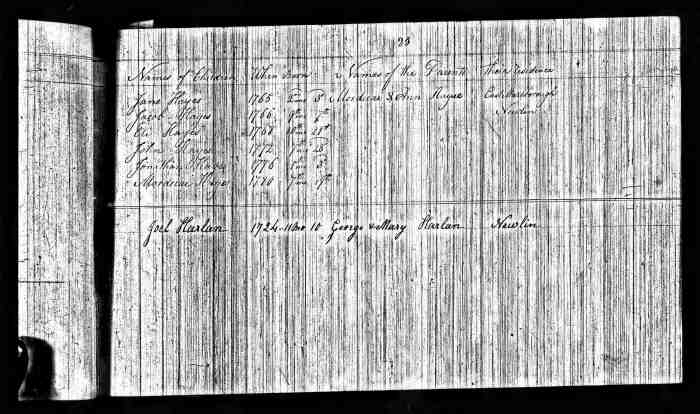 23
Names of Children When Born Names of the Parents Their Residence
Jane Hayes 1765 Mordecai & Ann Hayes East Marlborough
Jacob Hayes 1766 Newlin
Eli Hayes 1768
John Hayes 1772
Jonathan Hayes 1776
Mordecai Hayes 1780
Joel Harlan 1724 11mo 10 George & Mary Harlan Newlin